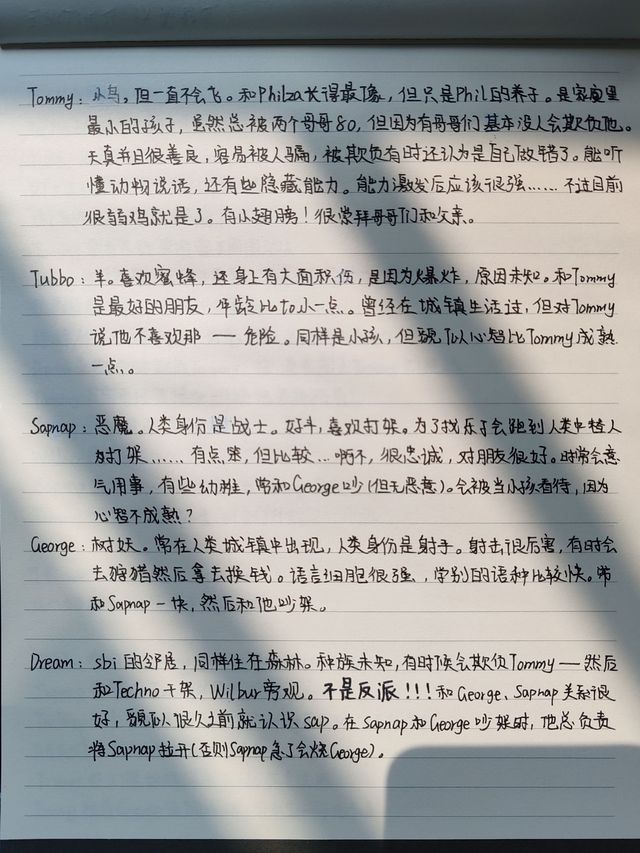 Tommy：小鸟，但一直不会飞。和Philza长得最像，但只是Phil的养子。是家庭里
最小的孩子，虽然总被两个哥哥80，但因为有哥哥们基本没人会欺负他。
天真并且很善良，容易被人骗，被欺负有时还认为是自己做错了。能听
懂动物说话，还有些隐藏能力。能力激发后应该很强……不过目前
很弱鸡就是了。有小翅膀！很崇拜哥哥们和父亲。
Tubbo：羊。喜欢蜜蜂，还身上有大面积伤，是因为爆炸，原因未知。和Tommy
是最好的朋友，年龄比to小一点。曾经在城镇生活过，但对Tommy
说他不喜欢那 — 危险。同样是小孩，但貌似心智比Tommy成熟
一点。
Sapnap：恶魔。人类身份是战士。好斗，喜欢打架。为了找乐子会跑到人类中揍人
打架……有点笨，但比较…啊不，很忠诚，对朋友很好。时常会意
气用事，有些幼稚，常和George吵(但无恶意)。会被当小孩看待，因为
心智不成熟？
George：树妖。常在人类城镇中出现，人类身份是射手。射击很厉害，有时会
去狩猎然后拿去换钱。语言细胞很强，学别的语种比较快。常
和Sapnap一块，然后和他吵架。
Dream：sbi的邻居，同样住在森林。种族未知，有时候会欺负Tommy — 然后
和Techno干架，Wilbur旁观。不是反派！！！和George、Sapnap关系很
好，貌似很久之前就认识sap。在Sapnap和George吵架时，他总负责
将Sapnap拉开(否则Sapnap急了会烧George)。